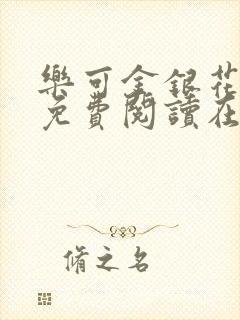 樂可金銀花
免費閱讀在
脩之名